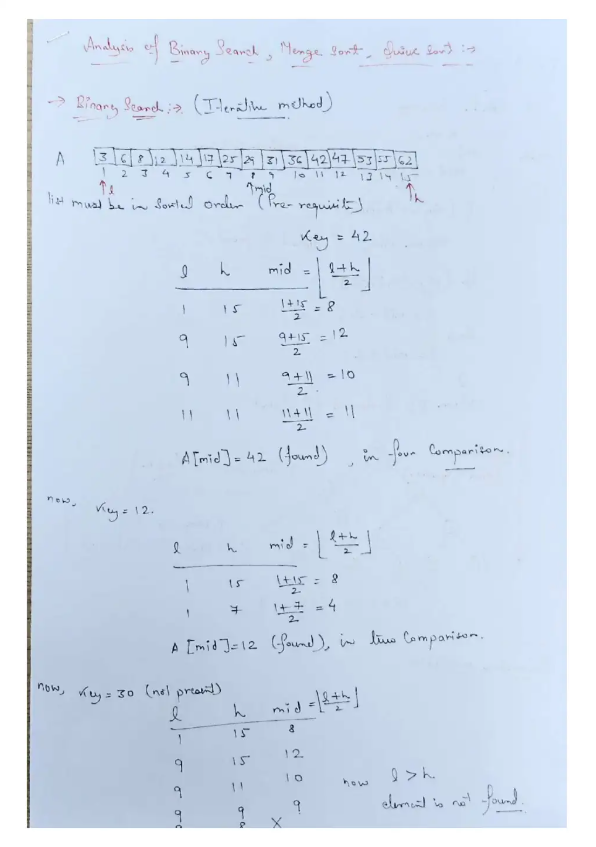 Analysis of Binary Search, Merge Sort, Quick Sort :→
→ Binary Search :→ (Iterative method)
A 3 6 8 12 14 17 25 29 31 36 42 47 53 55 62
1 2 3 4 5 6 7 8 9 10 11 12 13 14 15
↑l ↑mid ↑h
list must be in Sorted order (Pre-requisite)
Key = 42
l h mid = ⌊(l+h)/2⌋
1 15 (1+15)/2 = 8
9 15 (9+15)/2 = 12
9 11 (9+11)/2 = 10
11 11 (11+11)/2 = 11
A[mid] = 42 (found), in four Comparison.
now, Key = 12.
l h mid = ⌊(l+h)/2⌋
1 15 (1+15)/2 = 8
1 7 (1+7)/2 = 4
A[mid] = 12 (found), in two Comparison.
now, Key = 30 (not present)
l h mid = ⌊(l+h)/2⌋
1 15 8
9 15 12
9 11 10
now l > h
9 9 9
element is not found.
9 8 X